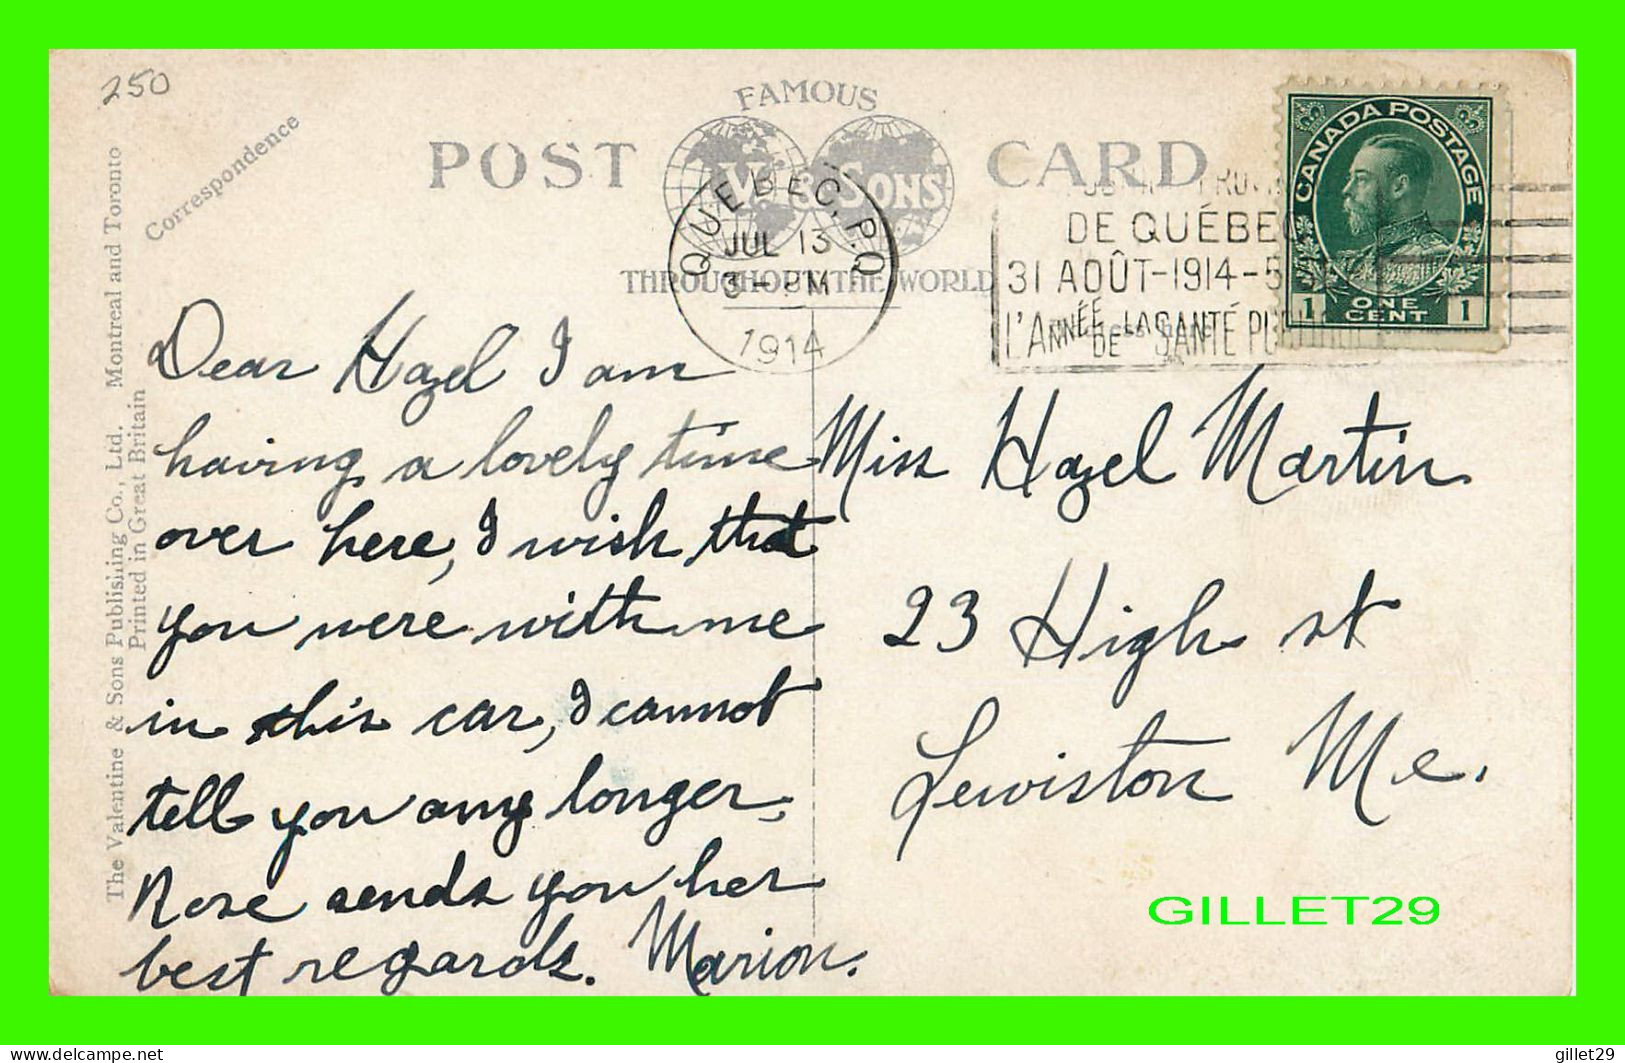 250
Correspondence
The Valentine & Sons Publishing Co., Ltd. Montreal and Toronto
Printed in Great Britain
FAMOUS
POST CARD
V & SONS
THROUGHOUT THE WORLD
QUEBEC, P.Q.
JUL 13
3 - PM
1914
DE QUÉBEC
31 AOÛT-1914-5
L'ANNÉE DE LA SANTÉ
CANADA POSTAGE
1 ONE CENT 1
Dear Hazel I am
having a lovely time
over here, I wish that
you were with me
in this car, I cannot
tell you any longer,
Rose sends you her
best regards. Marion.
Miss Hazel Martin
23 High st
Lewiston Me.
GILLET29
delcampe.net
gillet29